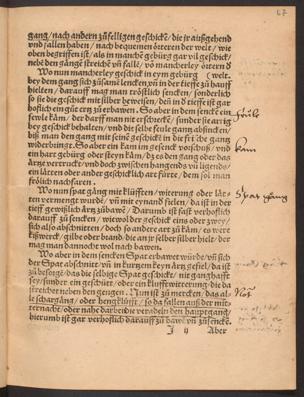 67
gang/nach andern zůfelligen geschickē/die jr außgehend
vnd fallen haben/nach bequemen ötteren der welt/wie
oben begriffen ist/als in manchē gebürg gar vil geschickt
nebē den gāngē streichē vñ fallē/võ mancherley öttern d
Wo nun mancherley geschick in eym gebürg (welt.
bey dem gang sein vñ welcher zů seynē ern in der tieffe zů hauff
hielten/darauff mag man tröstlich sencken/sonderlich
so sie die geschick mit silber beweisen/
hoflich ein gůt ertz zů erhawen. So aber in dem sencken ein
fewle kām/der darff man nit erschreckē/sunder sie
bey geschick behaltē/vnd die selbe feule gann absincken/
biß man den gang mit seinē geschickē in die frische gang
widerbringt. So aber ein kam im gesenck vorschůß/vnd
ein hart gebürg oder steyn kām/ds es den gang oder das
ärtz verruckt/vnd doch zwischen hangends vñ ligends/
ein lätten oder ander geschicklich art fürre/dem sol man
frölich nachfaren.
Wo nun spat gäng mit klüfften/witering oder lät-
ten vermengt wurdē/vñ mit eynand fielen/da ist in der
tieff gewißlich ärtz zůbawē/Darumb ist fast verhoflich
darauff zů sencken/wiewol der geschick eins oder zwey/
sich also abschnitten/doch so andere art zů kām/es were
kißwerck/gilb oder brand/die art zu selber silber hielt/der
mag man dannocht wol nach bawen.
Wo aber in dem sencken Spat erbawet würde/vñ sich
der Spat abschnitte/vñ in kurtzem keyn ärg fiel/da ist
zů besorgē/das die selbige Spat geschickt/nit ganghafft
sey/sunder ein geschüt/oder ein klufft witterung/die da
streichet neben den gengen. Nun ist zů mercken/das al-
le schargäng/oder hengklüfft/so da fallen auß der mit-
ternacht/oder nahe darbei die veradeln den hauptgang/
hierumb ist gar verhoflich darauff zů bawē vñ zů senckē.
J ij Aber
feüle
kam
Spat gäng
Not